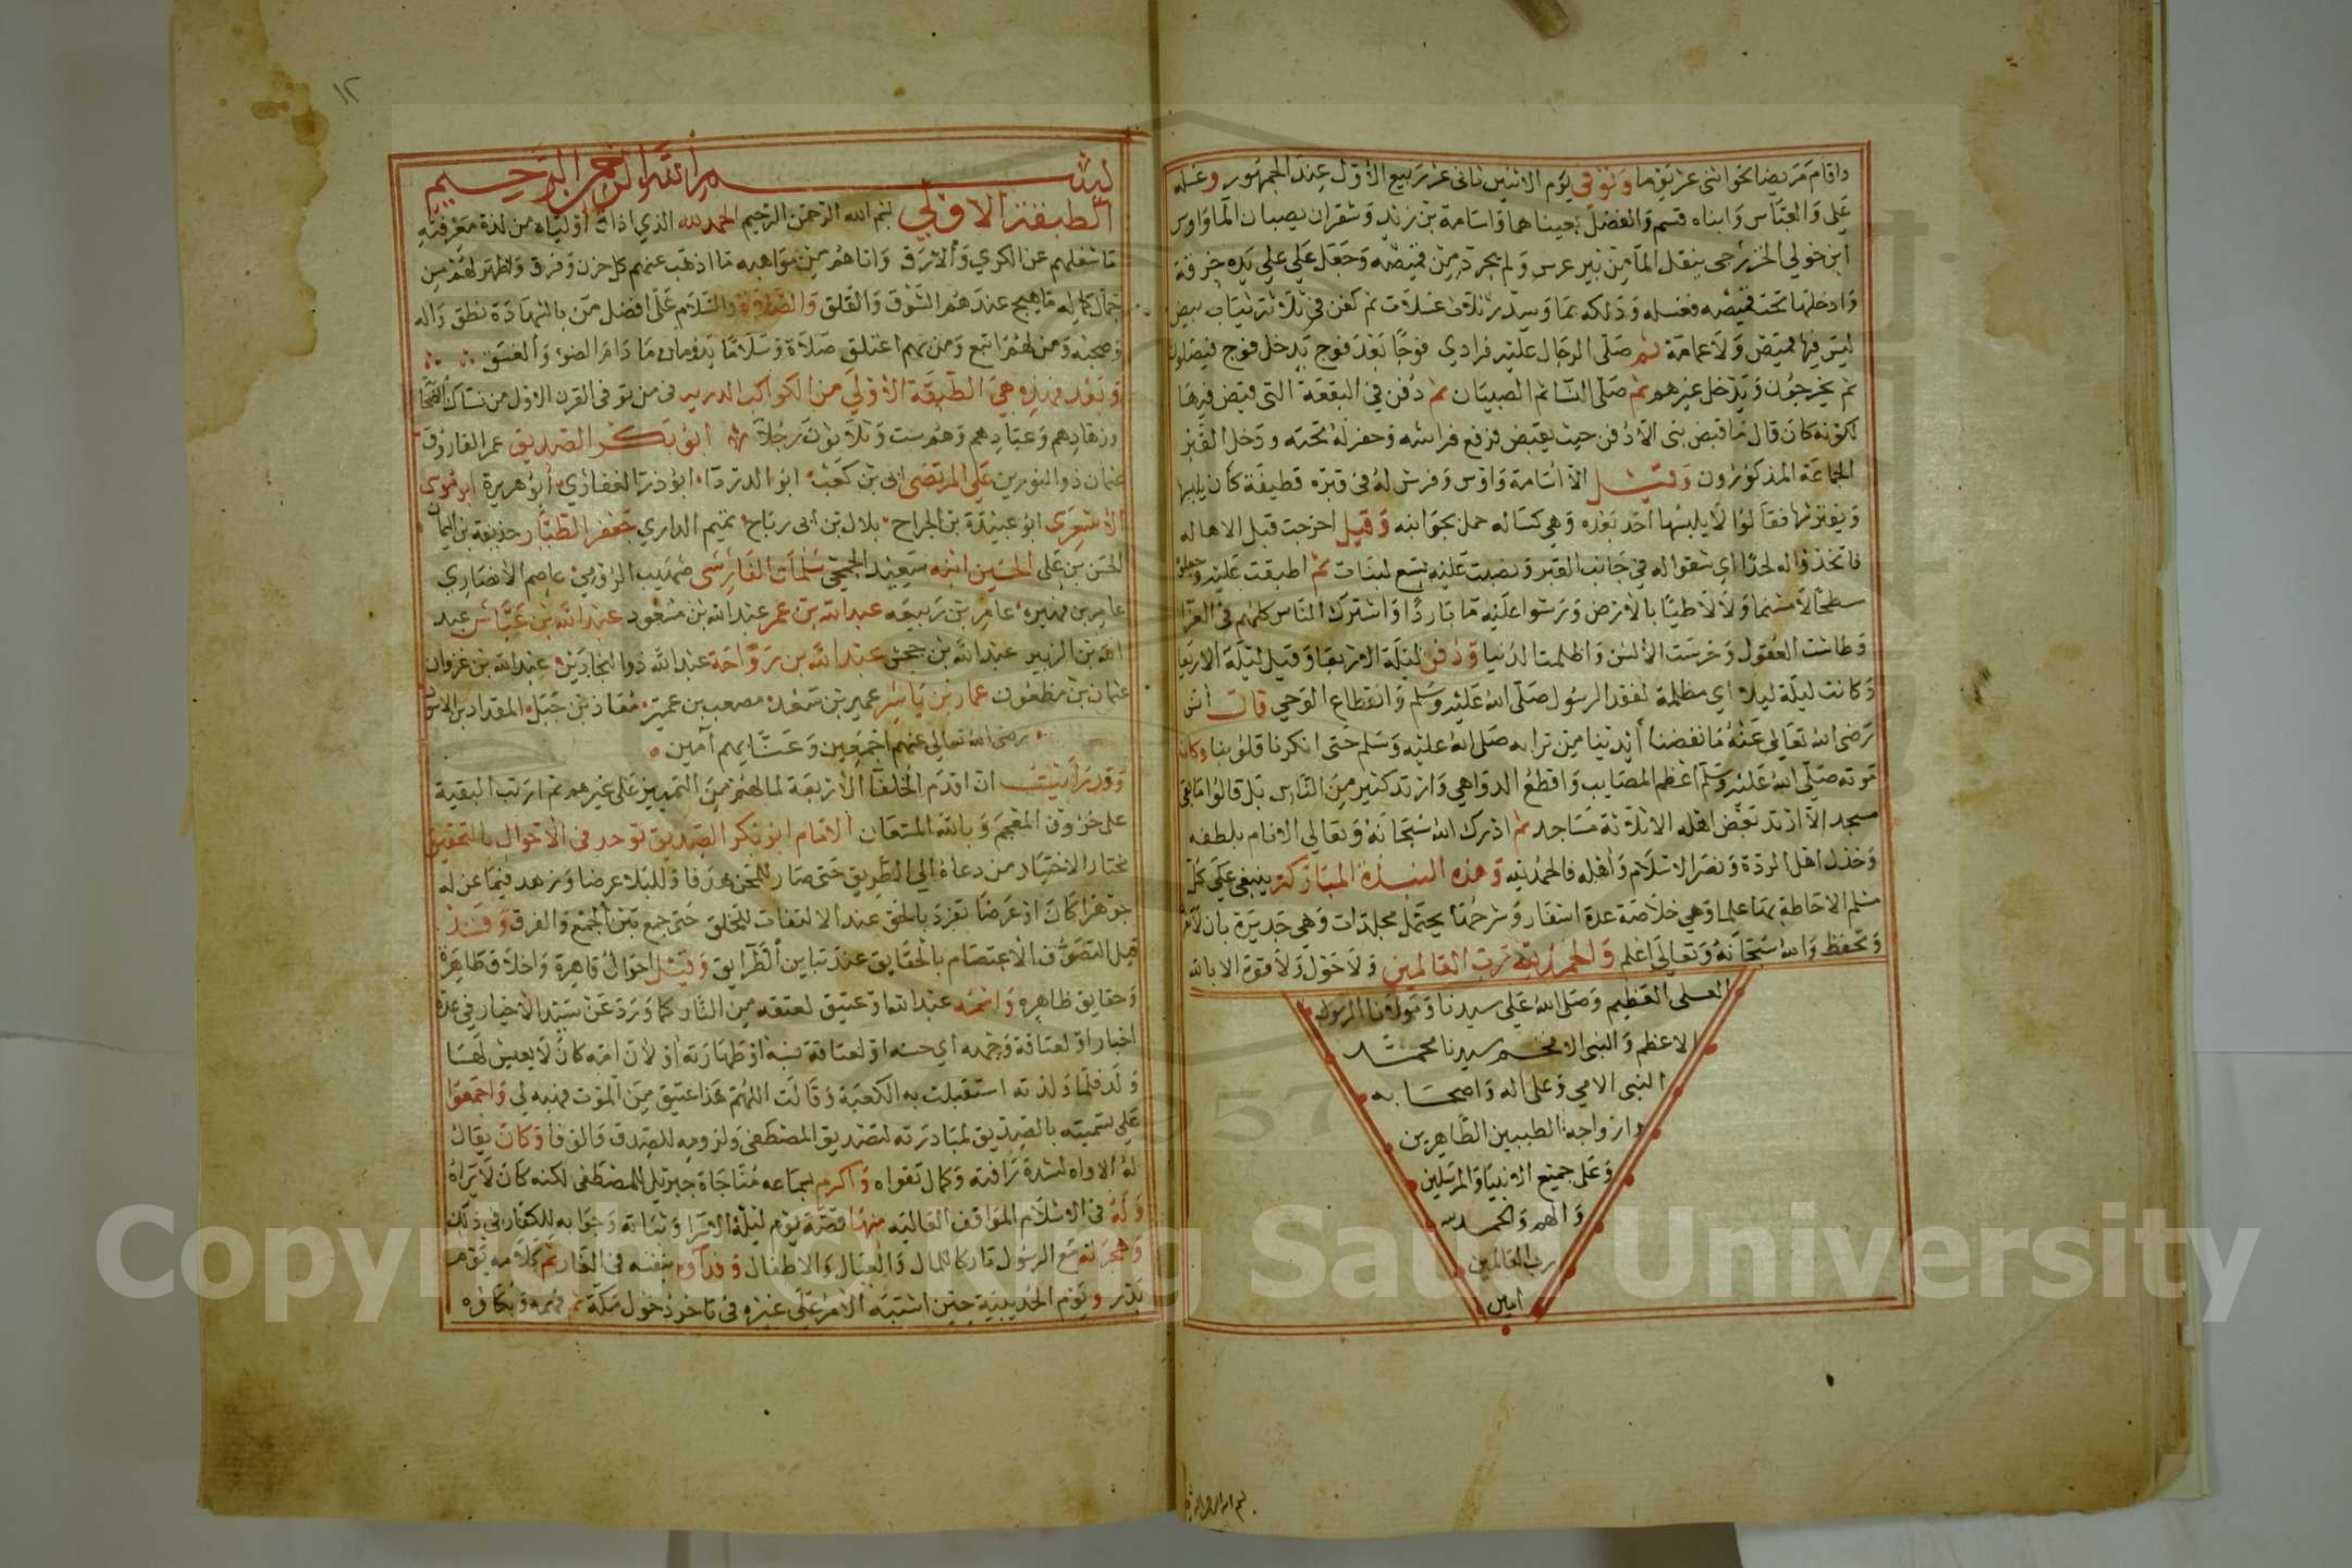 واقام مريضا نحو اثني عشر يوما وتوفي يوم الاثنين ثاني عشر ربيع الاول عند الجمهور وغسله
علي والعباس وابناه قثم والفضل يعيناهما واسامة بن زيد وشقران يصبان الما واوس
ابن خولي الخزرجي ينقل الما من بير عرس ولم يجرد من قميصه وجعل علي على يده خرقة
وادخلها تحت قميصه فغسله وذلكه بما وسدر ثلاث غسلات ثم كفن في ثلاثة ثياب بيض
ليس فيها قميص ولا عمامة ثم صلى الرجال عليه فرادي فوجا بعد فوج يدخل فوج فيصلون
ثم يخرجون ويدخل غيرهم ثم صلى النسا ثم الصبيان ثم دفن في البقعة التي قبض فيها
لكونه كان قال ما قبض نبي الا دفن حيث يقبض فرفع فراشه وحفر له تحته ودخل القبر
الجماعة المذكورون وقيل الا اسامة واوس وفرش له في قبره قطيفة كان يلبسها
ويفترشها فقالوا لا يلبسها احد بعده وهي كساله حمل بجوانبه وقيل اخرجت قبل الاهاله
فاتخذوا له لحدا اي شقوا له في جانب القبر ونصبت عليه تسع لبنات ثم اطبقت عليه وجعلوه
سطحا لا مسنما ولا لاطيا بالارض ورشوا عليه ما باردا واشترك الناس كلهم في العزا
وطاشت العقول وخرست الالسن واظلمت الدنيا ودفن ليلة الاربعا وقيل ليلة الاربعا
وكانت ليلة ليلا اي مظلمة لفقد الرسول صلى الله عليه وسلم وانقطاع الوحي قال انس
رضي الله تعالي عنه ما نفضنا ايدينا من ترابه صلى الله عليه وسلم حتى انكرنا قلوبنا وكان
موته صلى الله عليه وسلم اعظم المصايب واقطع الدواهي وارتد كثير من الناس بل قالوا ما بقي
مسجد الا ارتد بعض اهله الا ثلاثة مساجد ثم ادرك الله سبحانه وتعالي الانام بلطفه
وخذل اهل الردة ونصر الاسلام واهله فالحمد لله وهذه النبذة المباركة ينبغي على كل
مسلم الاحاطة بها علما وهي خلاصة عدة اسفار وشرحها يحتمل مجلدات وهي جديرة بان
وتحفظ والله سبحانه وتعالى اعلم والحمد لله رب العالمين ولا حول ولا قوة الا بالله
العلى العظيم وصلى الله على سيدنا ومولانا الرسول
الاعظم والنبي الافخم سيدنا محمد
النبي الامي وعلى اله واصحابه
وازواجه الطيبين الطاهرين
وعلى جميع الانبيا والمرسلين
والهم والحمد لله
رب العالمين
امين
١٢
بسم الله الرحمن الرحيم
الطبقة الاولي بسم الله الرحمن الرحيم الحمد لله الذي اذاق اولياه من لذة معرفته
ما شغلهم عن الكري والارق واتاهم من مواهبه ما اذهب عنهم كل حزن وفرق واظهر لهم من
جمال كماله ما يهيج عندهم الشوق والقلق والصلاة والسلام على افضل من بالشهادة نطق واله
وصحبه ومن لهم اتبع ومن بهم اعتلق صلاة وسلاما يدومان ما دام الضو والغسق
وبعد فهذه هي الطبقة الاولي من الكواكب الدريه في من توفى القرن الاول من نساك الصحابة
وزهادهم وعبادهم وهم ست وثلاثون رجلا ابو بكر الصديق عمر الفاروق
عثمان ذو النورين علي المرتضى ابي بن كعب ابو الدردا ابو ذر الغفاري ابو هريرة ابو موسى
الاشعري ابو عبيدة بن الجراح بلال بن ابى رباح تميم الداري جعفر الطيار حذيفة بن اليمان
الحسن بن على الحسين ابنه سعيد الجمحي سلمان الفارسي صهيب الرومي عاصم الانصاري
عامر بن فهيره عامر بن ربيعه عبد الله بن عمر عبد الله بن مسعود عبد الله بن عباس عبد
الله بن الزبير عبد الله بن جحش عبد الله بن رواحة عبد الله ذو البجادين عبد الله بن غزوان
عثمان بن مظعون عمار بن ياسر عمير بن سعد مصعب بن عمير معاذ بن جبل المقداد بن الاسود
رضى الله تعالي عنهم اجمعين وعنا بهم آمين
وقد رايت ان اقدم الخلفا الاربعة لما لهم من التمييز على غيرهم ثم ارتب البقية
على حروف المعجم وبالله المستعان الامام ابو بكر الصديق توحد في الاحوال بالتحقيق
مختار الاختيار من دعاه الي الطريق حتى صار للمحن هدفا وللبلا عرضا وزهد فيما عن له
جوهرا كان او عرضا تفرد بالحق عند الالتفات للخلق حتى جمع بين الجمع والفرق وقد
قيل التصوف الاعتصام بالحقايق عند تباين الطرايق وقيل احوال قاهرة واخلاق ظاهرة
وحقايق ظاهره واسمه عبد الله او عتيق لعتقه من النار كما ورد عن سيد الاخيار في عدة
اخبار او لعتاقة وجهه اي حسنه او لعتاقة نسبه او طهارته او لان امه كان لا يعيش لها
ولد فلما ولدته استقبلت به الكعبة وقالت اللهم هذا عتيق من الموت فهبه لي واجمعوا
على تسميته بالصديق لمبادرته لتصديق المصطفى ولزومه للصدق والوفا وكان يقال
له الاواه لشدة رافته وكمال تقواه واكرم بسماعه مناجاة جبريل للمصطفى لكنه كان لا يراه
وله في الاسلام المواقف العاليه منها قصة يوم ليلة الاسرا وثباته وجوابه للكفار في ذلك
وهجرته مع الرسول تاركا للمال والعيال والاطفال وفداوه بنفسه فى الغار ثم كلامه يوم
بدر ويوم الحديبية حين اشتبه الامر على غيره في تاخر دخول مكة ثم فهمه وبكاوه
Copyright © King Saud University